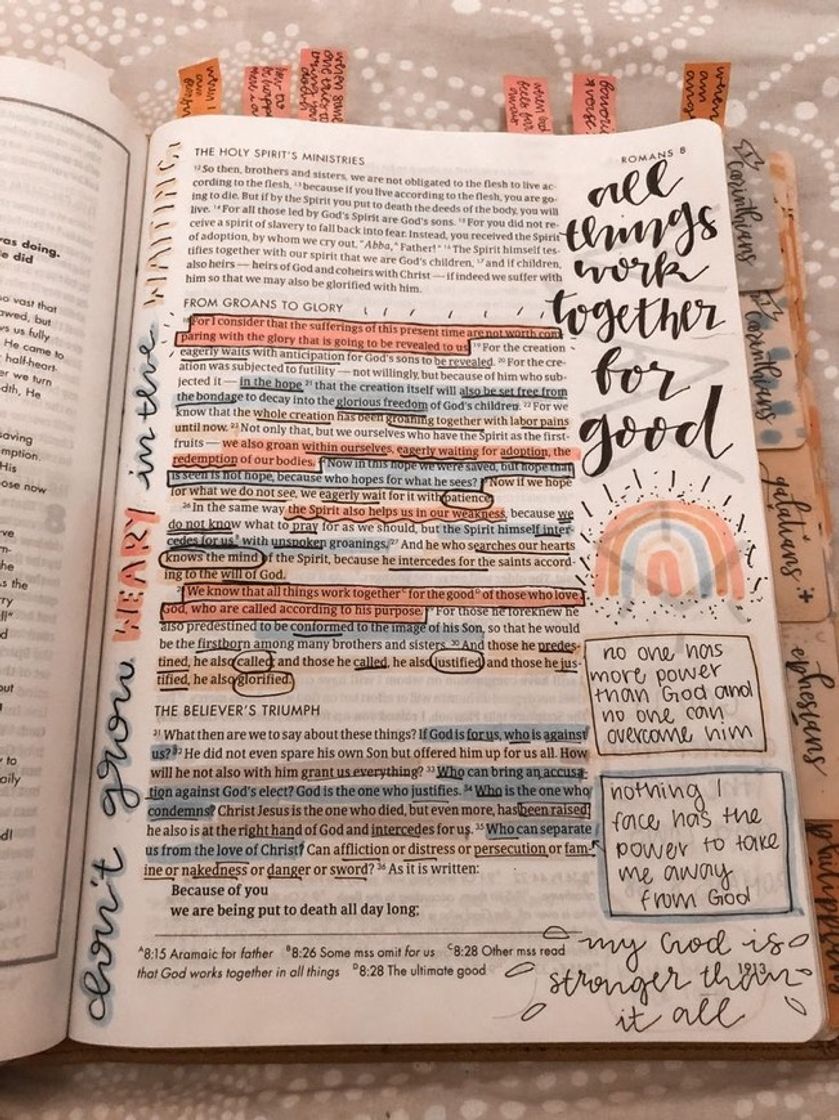 when I
am
THE HOLY SPIRIT'S MINISTRIES
ROMANS 8
¹²So then, brothers and sisters, we are not obligated to the flesh to live ac-
cording to the flesh, ¹³because if you live according to the flesh, you are go-
ing to die. But if by the Spirit you put to death the deeds of the body, you will
live. ¹⁴For all those led by God's Spirit are God's sons. ¹⁵For you did not re-
ceive a spirit of slavery to fall back into fear. Instead, you received the Spirit
of adoption, by whom we cry out, "Abba,ᴬ Father!" ¹⁶The Spirit himself tes-
tifies together with our spirit that we are God's children, ¹⁷and if children,
also heirs — heirs of God and coheirs with Christ — if indeed we suffer with
him so that we may also be glorified with him.
FROM GROANS TO GLORY
¹⁸For I consider that the sufferings of this present time are not worth com-
paring with the glory that is going to be revealed to us. ¹⁹For the creation
eagerly waits with anticipation for God's sons to be revealed. ²⁰For the cre-
ation was subjected to futility — not willingly, but because of him who sub-
jected it — in the hope ²¹that the creation itself will also be set free from
the bondage to decay into the glorious freedom of God's children. ²²For we
know that the whole creation has been groaning together with labor pains
until now. ²³Not only that, but we ourselves who have the Spirit as the first-
fruits — we also groan within ourselves, eagerly waiting for adoption, the
redemption of our bodies. ²⁴Now in this hope we were saved, but hope that
is seen is not hope, because who hopes for what he sees? ²⁵Now if we hope
for what we do not see, we eagerly wait for it with patience.
²⁶In the same way the Spirit also helps us in our weakness, because we
do not know what to pray for as we should, but the Spirit himself inter-
cedes for usᴮ with unspoken groanings. ²⁷And he who searches our hearts
knows the mind of the Spirit, because he intercedes for the saints accord-
ing to the will of God.
²⁸We know that all things work togetherᶜ for the goodᴰ of those who love
God, who are called according to his purpose. ²⁹For those he foreknew he
also predestined to be conformed to the image of his Son, so that he would
be the firstborn among many brothers and sisters. ³⁰And those he predes-
tined, he also called; and those he called, he also justified; and those he jus-
tified, he also glorified.
THE BELIEVER'S TRIUMPH
³¹What then are we to say about these things? If God is for us, who is against
us? ³²He did not even spare his own Son but offered him up for us all. How
will he not also with him grant us everything? ³³Who can bring an accusa-
tion against God's elect? God is the one who justifies. ³⁴Who is the one who
condemns? Christ Jesus is the one who died, but even more, has been raised;
he also is at the right hand of God and intercedes for us. ³⁵Who can separate
us from the love of Christ? Can affliction or distress or persecution or fam-
ine or nakedness or danger or sword? ³⁶As it is written:
Because of you
we are being put to death all day long;
ᴬ8:15 Aramaic for father ᴮ8:26 Some mss omit for us ᶜ8:28 Other mss read
that God works together in all things ᴰ8:28 The ultimate good
1013
don't grow WEARY in the WAITING
all
things
work
together
for
good
no one has
more power
than God and
no one can
overcome him
nothing I
face has the
power to take
me away
from God
my God is
stronger than
it all
corinthians
corinthians
galatians +
ephesians